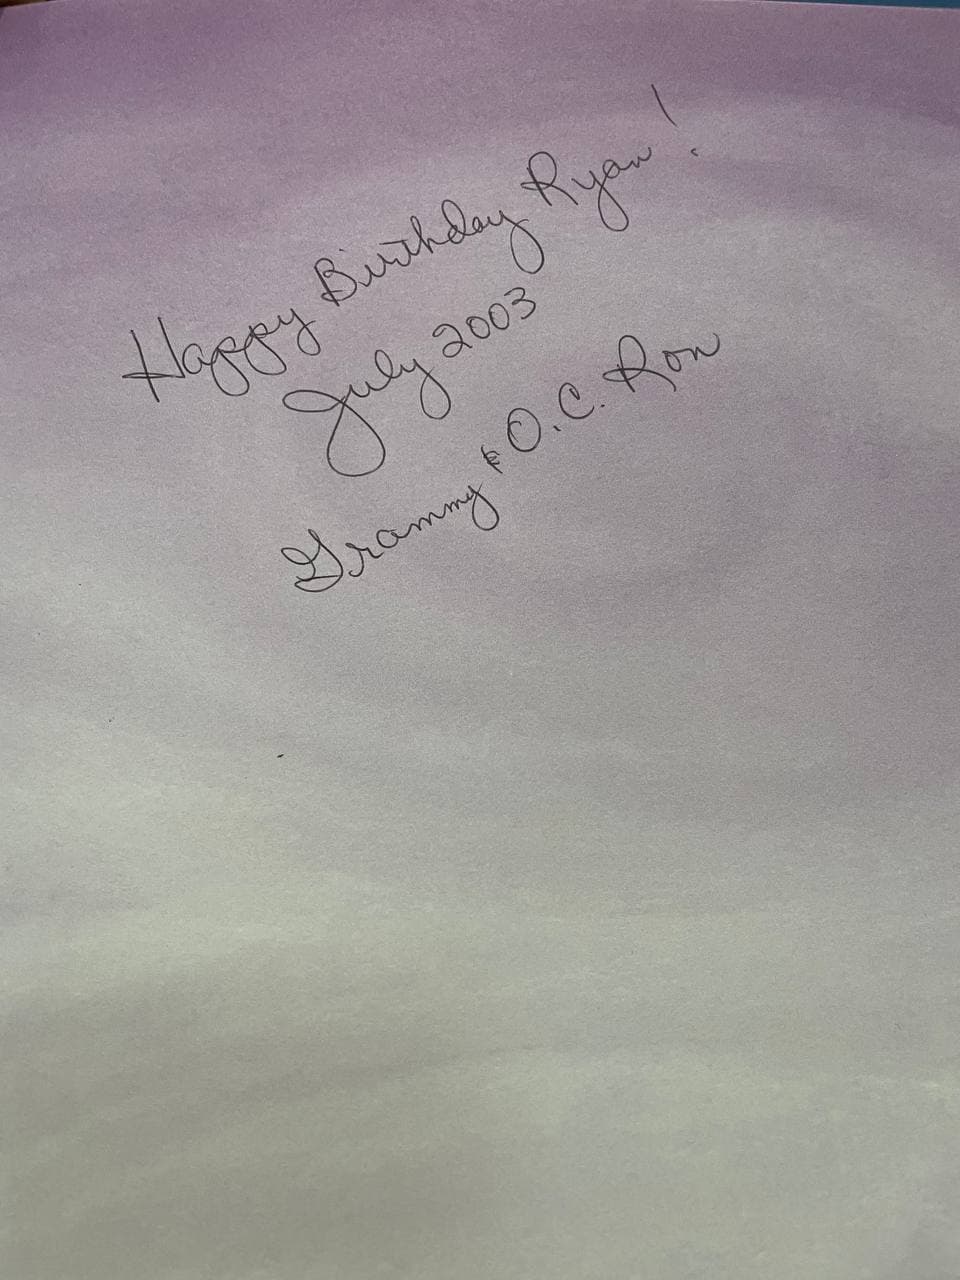 Happy Birthday Ryan!
July 2003
Grammy & O.C. Ron